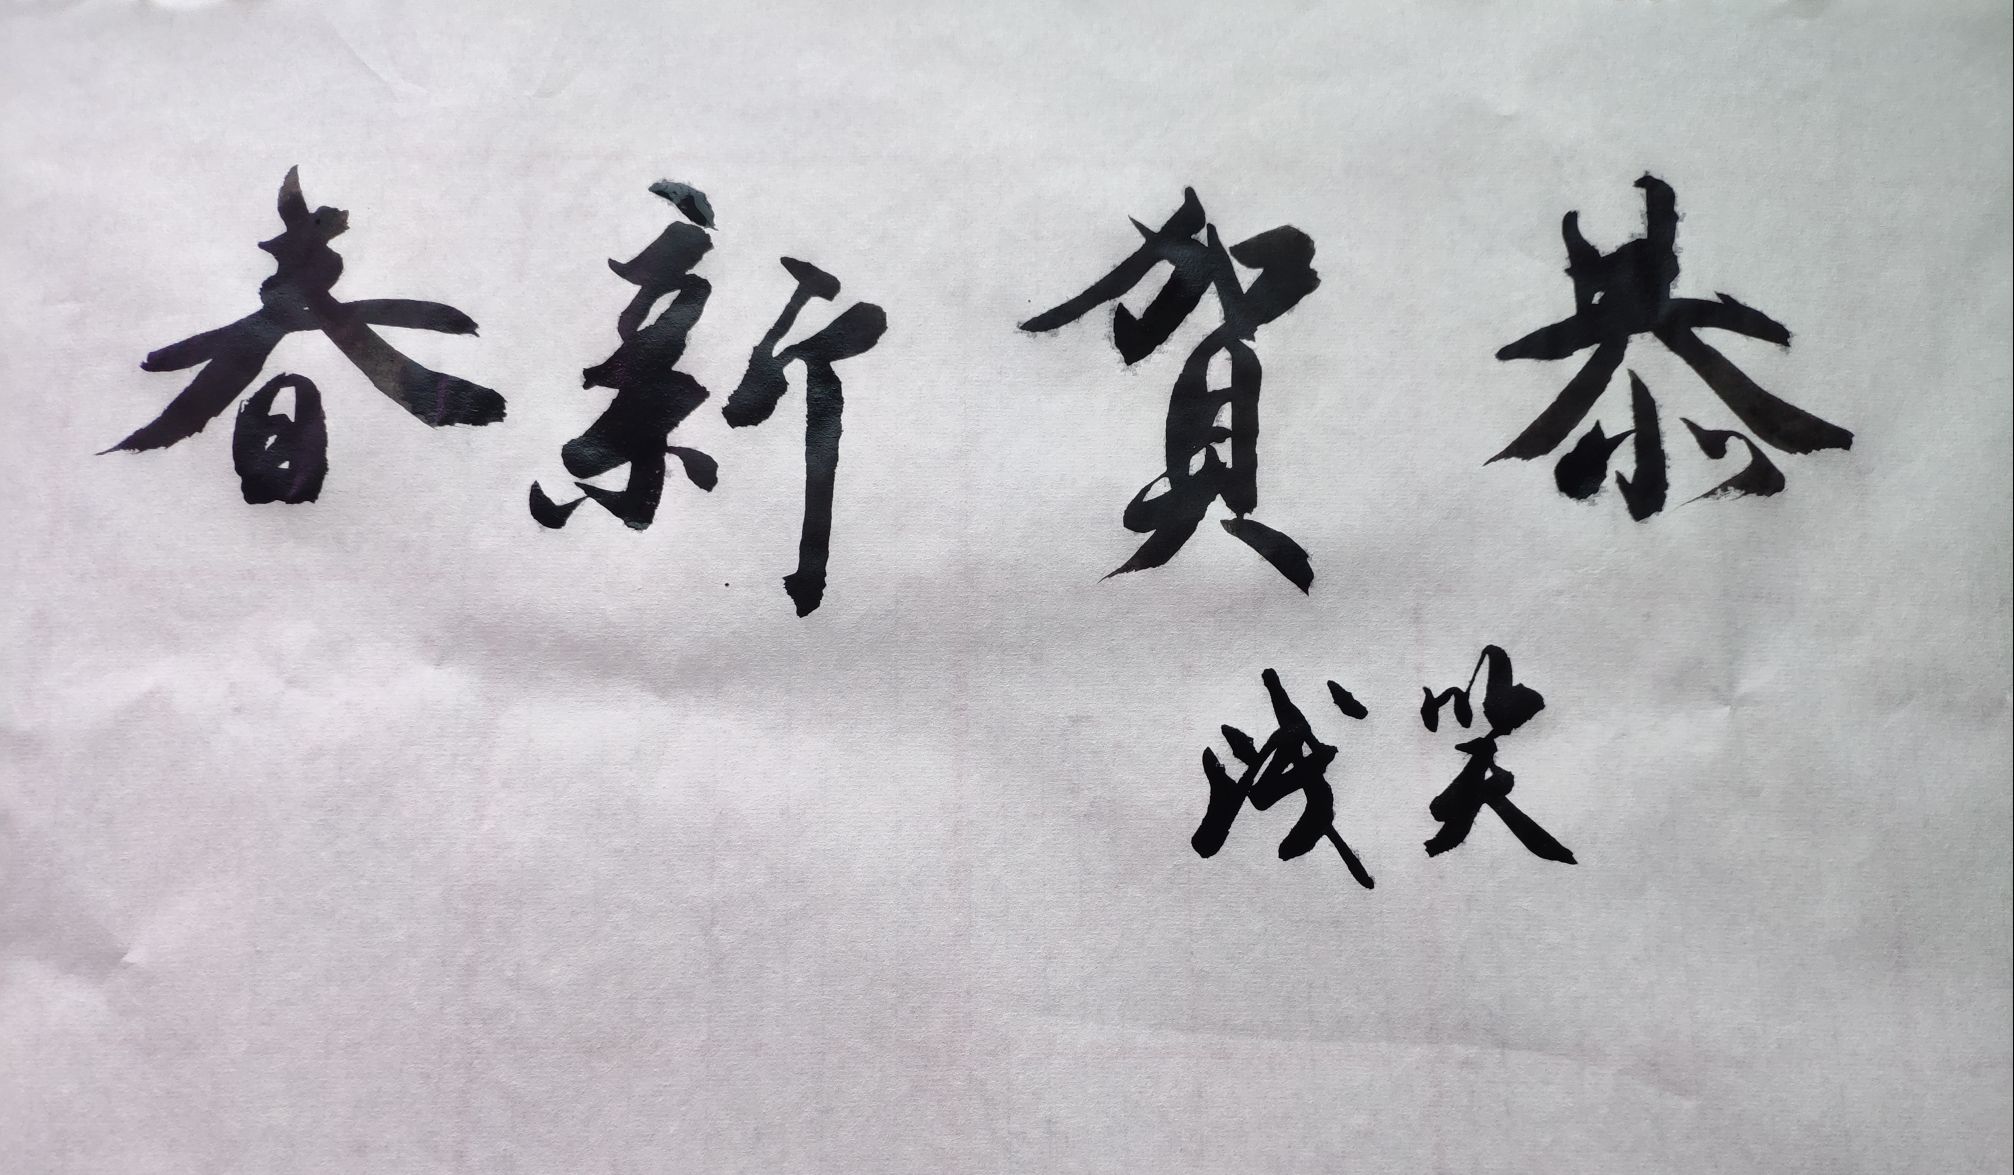 恭賀新春
笑浅